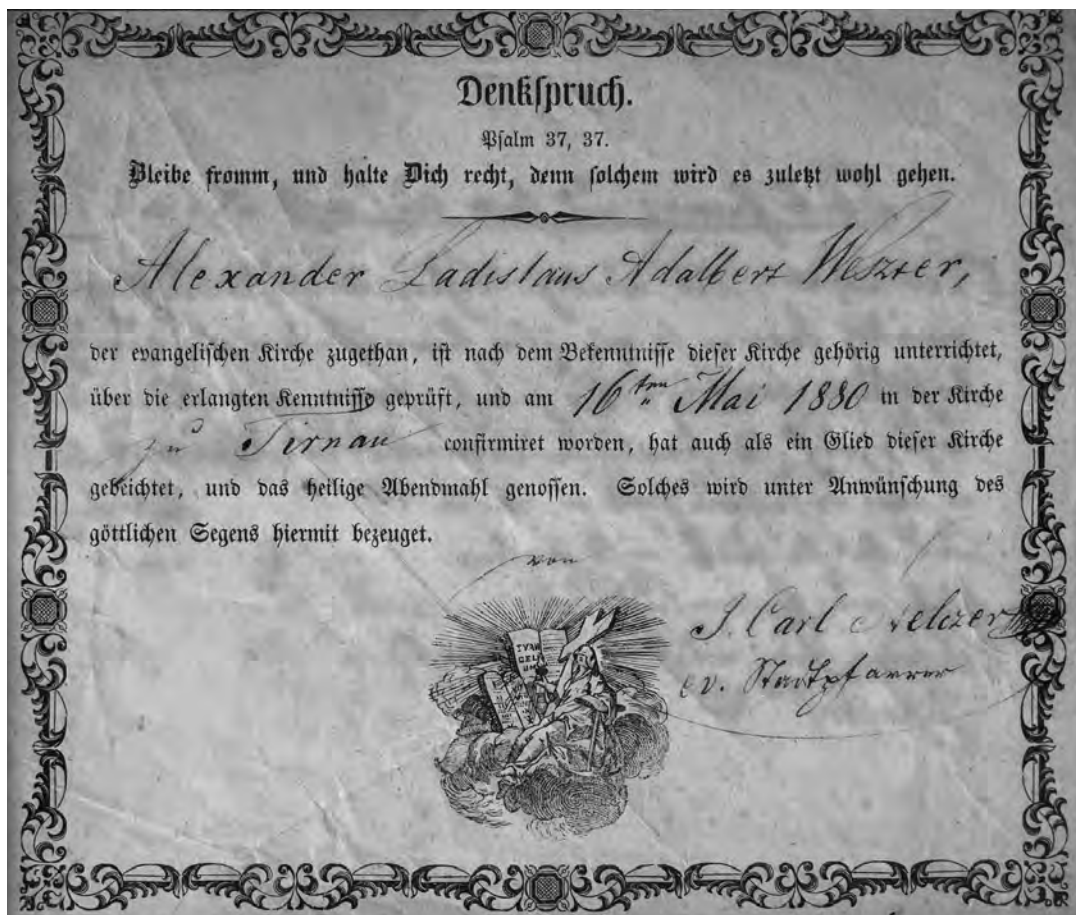 Denkspruch.
Psalm 37, 37.
Bleibe fromm, und halte Dich recht, denn solchem wird es zuletzt wohl gehen.
Alexander Ladislaus Adalbert Weszter,
der evangelischen Kirche zugethan, ist nach dem Bekenntnisse dieser Kirche gehörig unterrichtet,
über die erlangten Kenntnisse geprüft, und am 16ten Mai 1880 in der Kirche
zu Tirnau confirmiret worden, hat auch als ein Glied dieser Kirche
gebeichtet, und das heilige Abendmahl genossen. Solches wird unter Anwünschung des
göttlichen Segens hiermit bezeuget.
von
J. Carl
ev. Stadtpfarrer